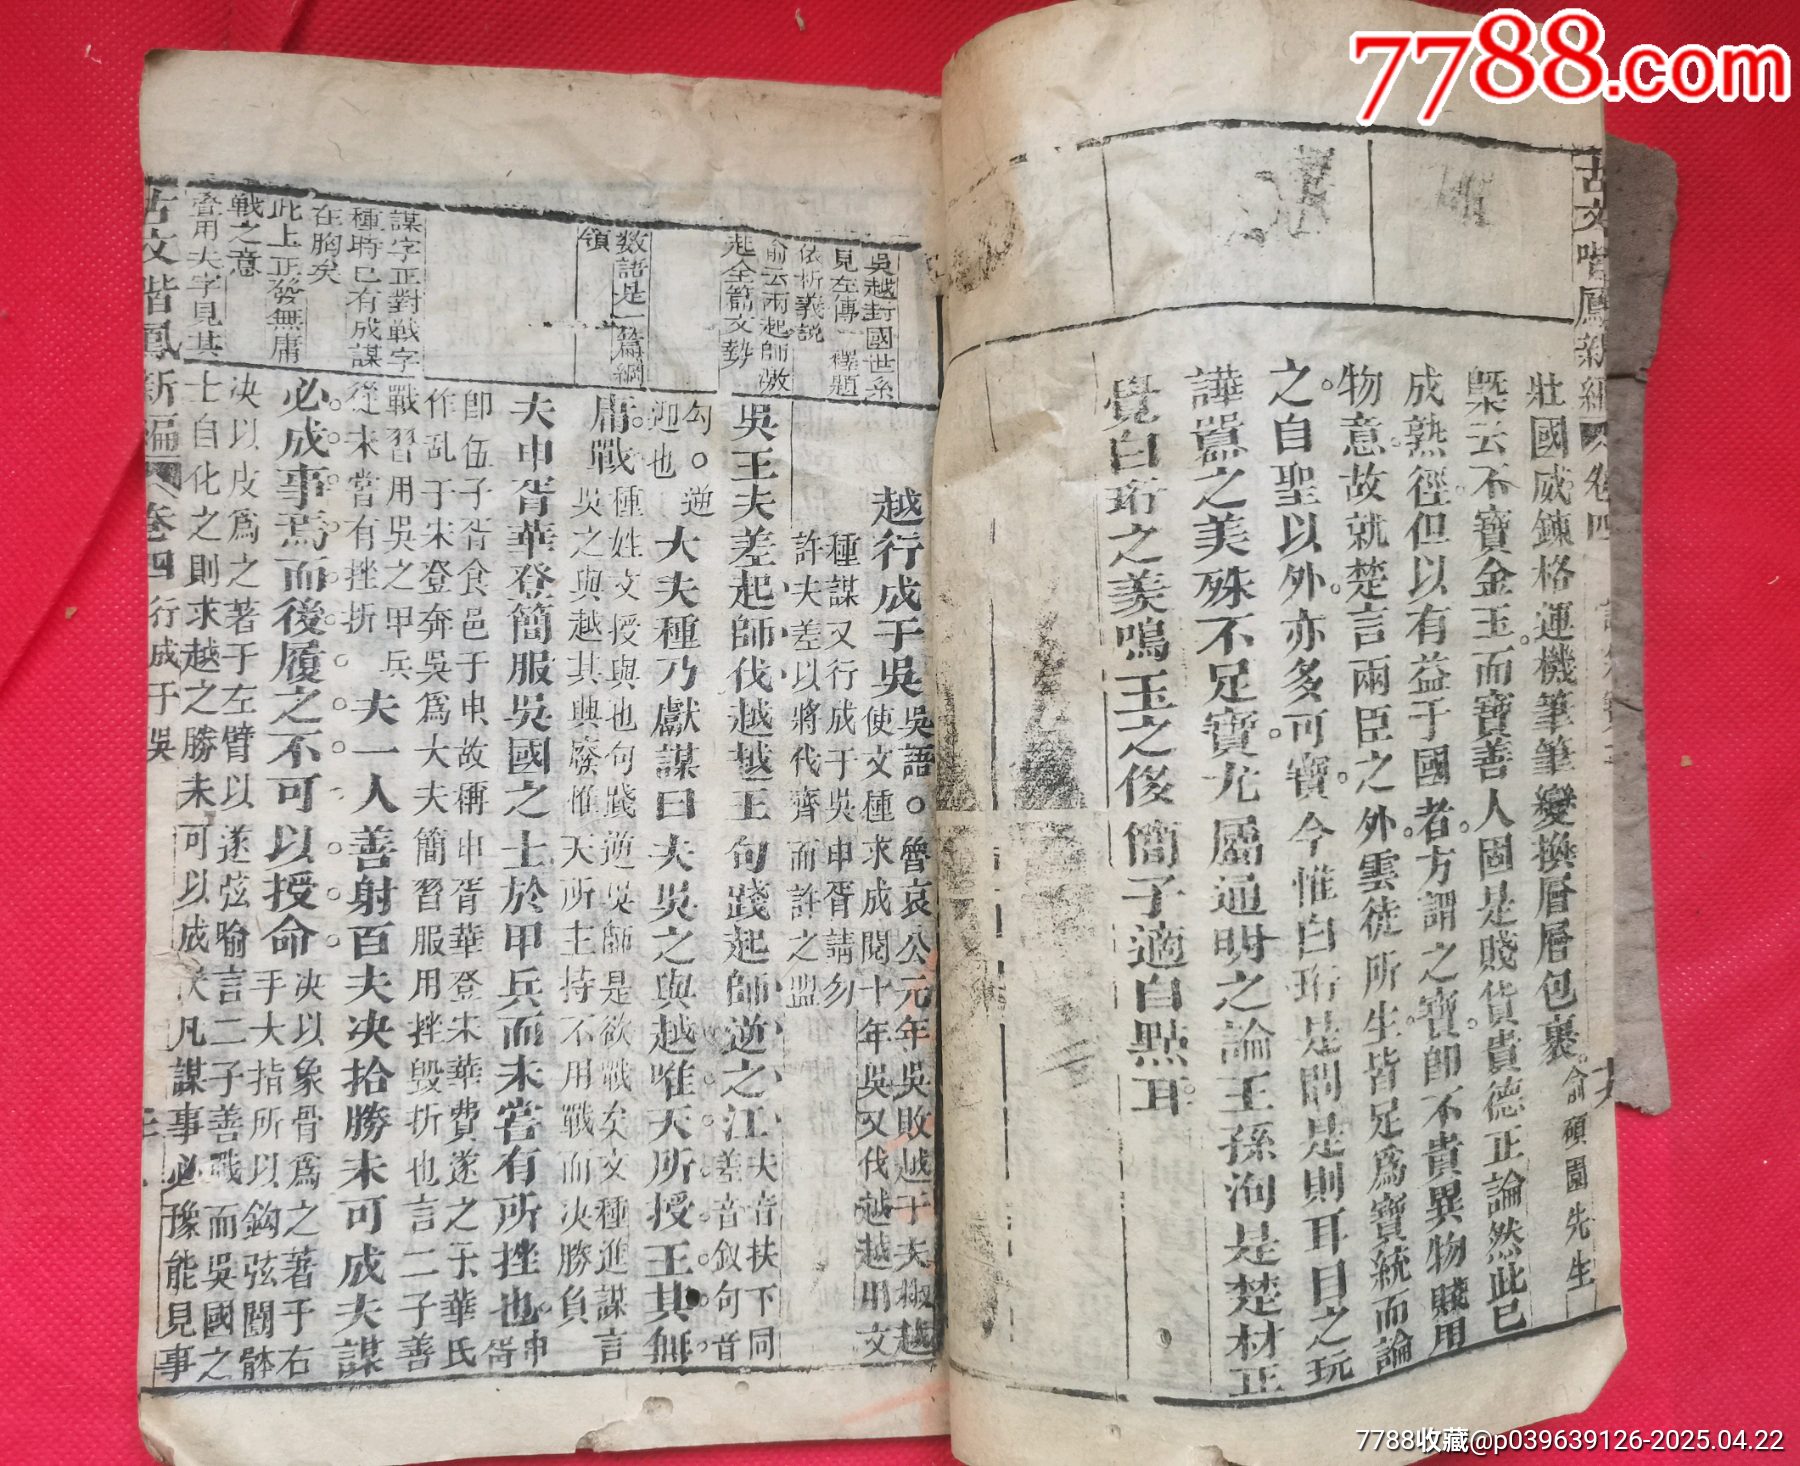 7788.com
古文階鳳新編 卷四
壯國威鍊格運機筆筆變換層層包裹。俞碩園先生
槩云不寶金玉而寶善人固是賤貨貴德正論然此已
成熟徑但以有益于國者方謂之寶即不貴異物賤用
物意故就楚言兩臣之外雲徒所生皆足為寶統而論
之自聖以外亦多可寶今惟白珩是問是則耳目之玩
譁囂之美殊不足寶尤屬通明之論王孫洵是楚材正
覺白珩之美鳴玉之後簡子適自點耳
吳越封國世系
見左傳 釋題
依析義說
俞云兩起師激
起全篇文勢
数語是一篇綱
領
謀字正對戰字
種時已有成謀
在胸矣
此上正發無庸
戰之意
叠用夫字見其
越行成于吳吳語。魯哀公元年吳敗越于夫椒越
使文種求成閱十年吳又伐越越用文
種謀又行成于吳申胥請勿
許夫差以將伐齊而許之盟
吳王夫差起師伐越越王句踐起師逆之江夫音扶下同
差音釵句音
勾。逆
迎也
大夫種乃獻謀曰夫吳之與越唯天所授王其無
庸戰種姓文授與也句踐逆吳師是欲戰矣文種進謀言
吳之與越其興廢惟天所主持不用戰而决勝負
夫申胥華登簡服吳國之士於甲兵而未嘗有所挫也申胥
卽伍子胥食邑于申故稱申胥華登宋華費遂之子華氏
作乱于宋登奔吳為大夫簡習服用挫毀折也言二子善
戰習用吳之甲兵
從未嘗有挫折
夫一人善射百夫决拾勝未可成夫謀
必成事焉而後履之不可以授命决以象骨為之著于右
手大指所以鈎弦闓體
决以皮為之著于左臂以遂弦喻言二子善戰而吳國之
士自化之則求越之勝未可以成夫凡謀事必豫能見事
古文階鳳新編 卷四 行成于吳
7788收藏@p039639126-2025.04.22